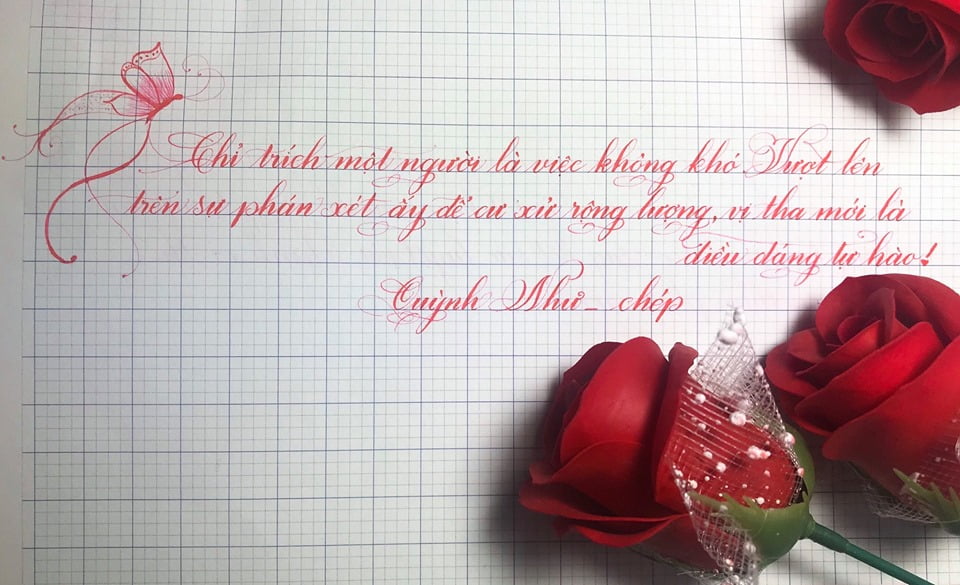 Chỉ trích một người là việc không khó Vượt lên
trên sự phán xét ấy để cư xử rộng lượng, vị tha mới là
điều đáng tự hào!
Quỳnh Như _ chép